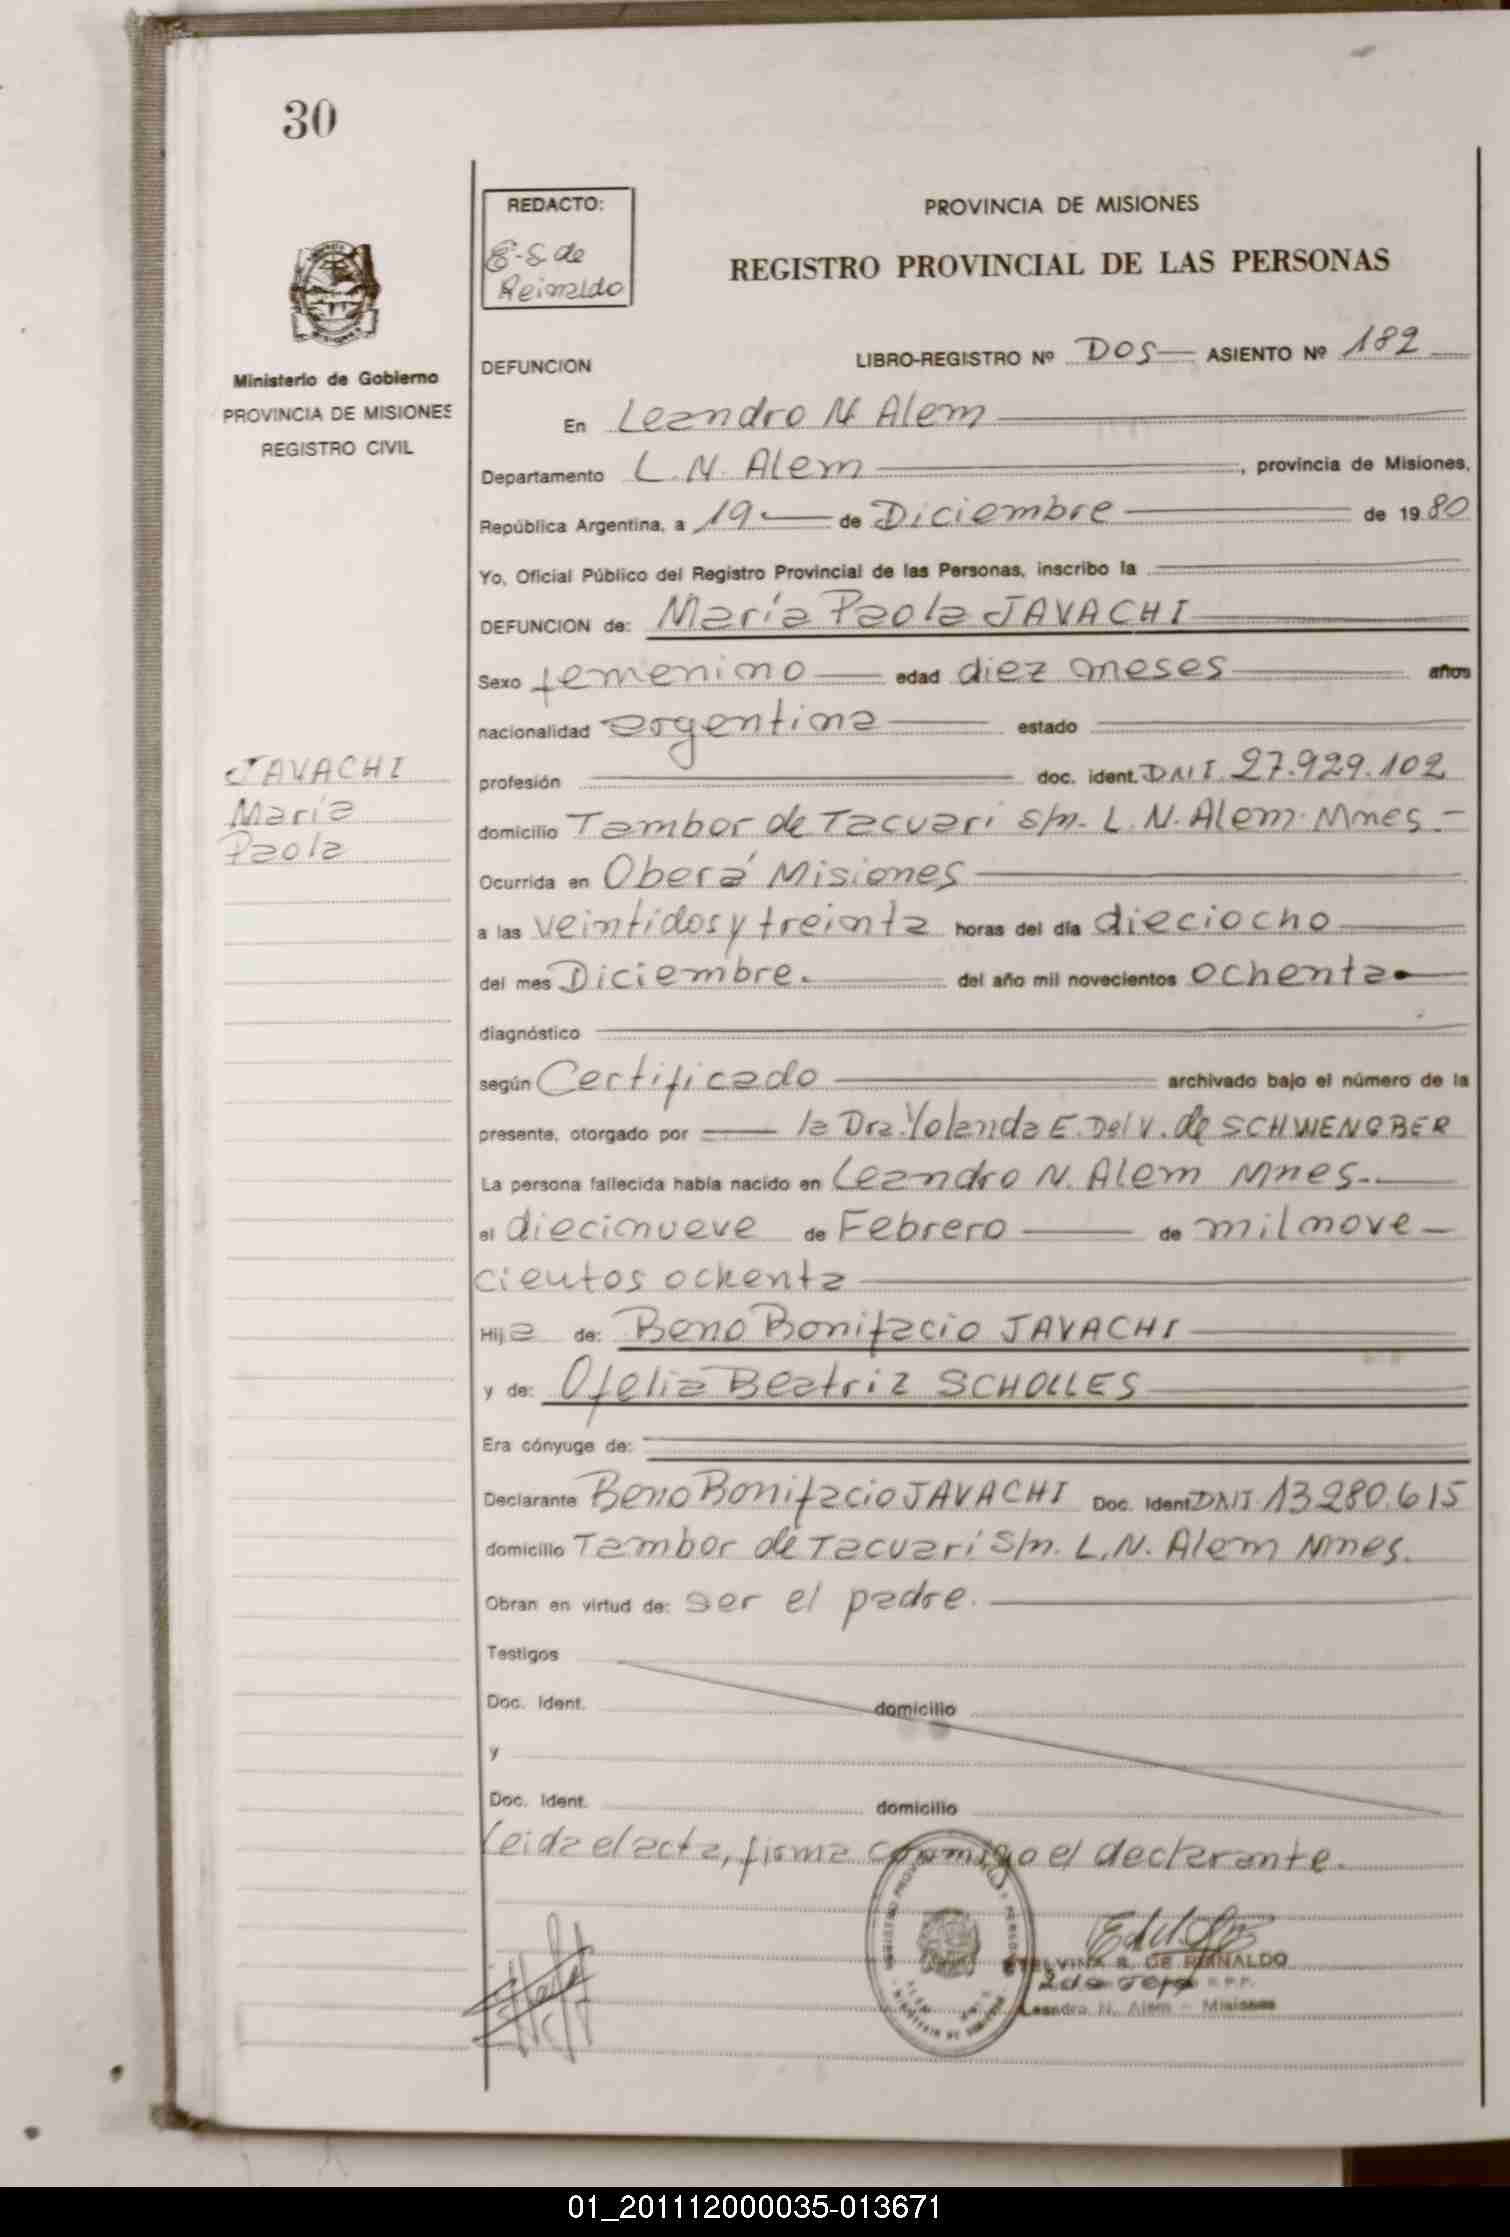 30
Ministerio de Gobierno
PROVINCIA DE MISIONES
REGISTRO CIVIL
JAVACHI
María
Paola
REDACTO:
E.S. de
Reinaldo
PROVINCIA DE MISIONES
REGISTRO PROVINCIAL DE LAS PERSONAS
DEFUNCION LIBRO-REGISTRO Nº DOS ASIENTO Nº 182
En Leandro N Alem
Departamento L. N. Alem, provincia de Misiones,
República Argentina, a 19 de Diciembre de 1980
Yo, Oficial Público del Registro Provincial de las Personas, inscribo la
DEFUNCION de: María Paola JAVACHI
Sexo femenino edad diez meses años
nacionalidad argentina estado
profesión doc. ident. DNI 27.929.102
domicilio Tambor de Tacuari s/n. L. N. Alem. Mnes.-
Ocurrida en Oberá Misiones
a las veintidos y treinta horas del día dieciocho
del mes Diciembre. del año mil novecientos ochenta
diagnóstico
según Certificado archivado bajo el número de la
presente, otorgado por la Dra. Yolanda E. Del V. de SCHWENGBER
La persona fallecida había nacido en Leandro N. Alem Mnes.-
el diecinueve de Febrero de mil nove-
cientos ochenta
Hija de: Beno Bonifacio JAVACHI
y de: Ofelia Beatriz SCHOLLES
Era cónyuge de:
Declarante Beno Bonifacio JAVACHI Doc. Ident DNI 13.280.615
domicilio Tambor de Tacuarí S/n. L. N. Alem Mnes.
Obran en virtud de: ser el padre.
Testigos
Doc. Ident. domicilio
y
Doc. Ident. domicilio
Leida el acta, firma conmigo el declarante.
ETELVINA S. DE REINALDO
Leandro N. Alem - Misiones
01_201112000035-013671